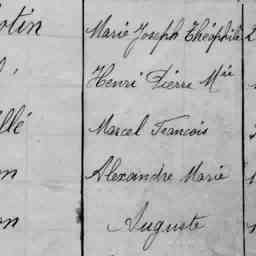 otin Marie Joseph Théophile
Henri Pierre Mie
llé Marcel Francois
on Alexandre Marie
on Auguste